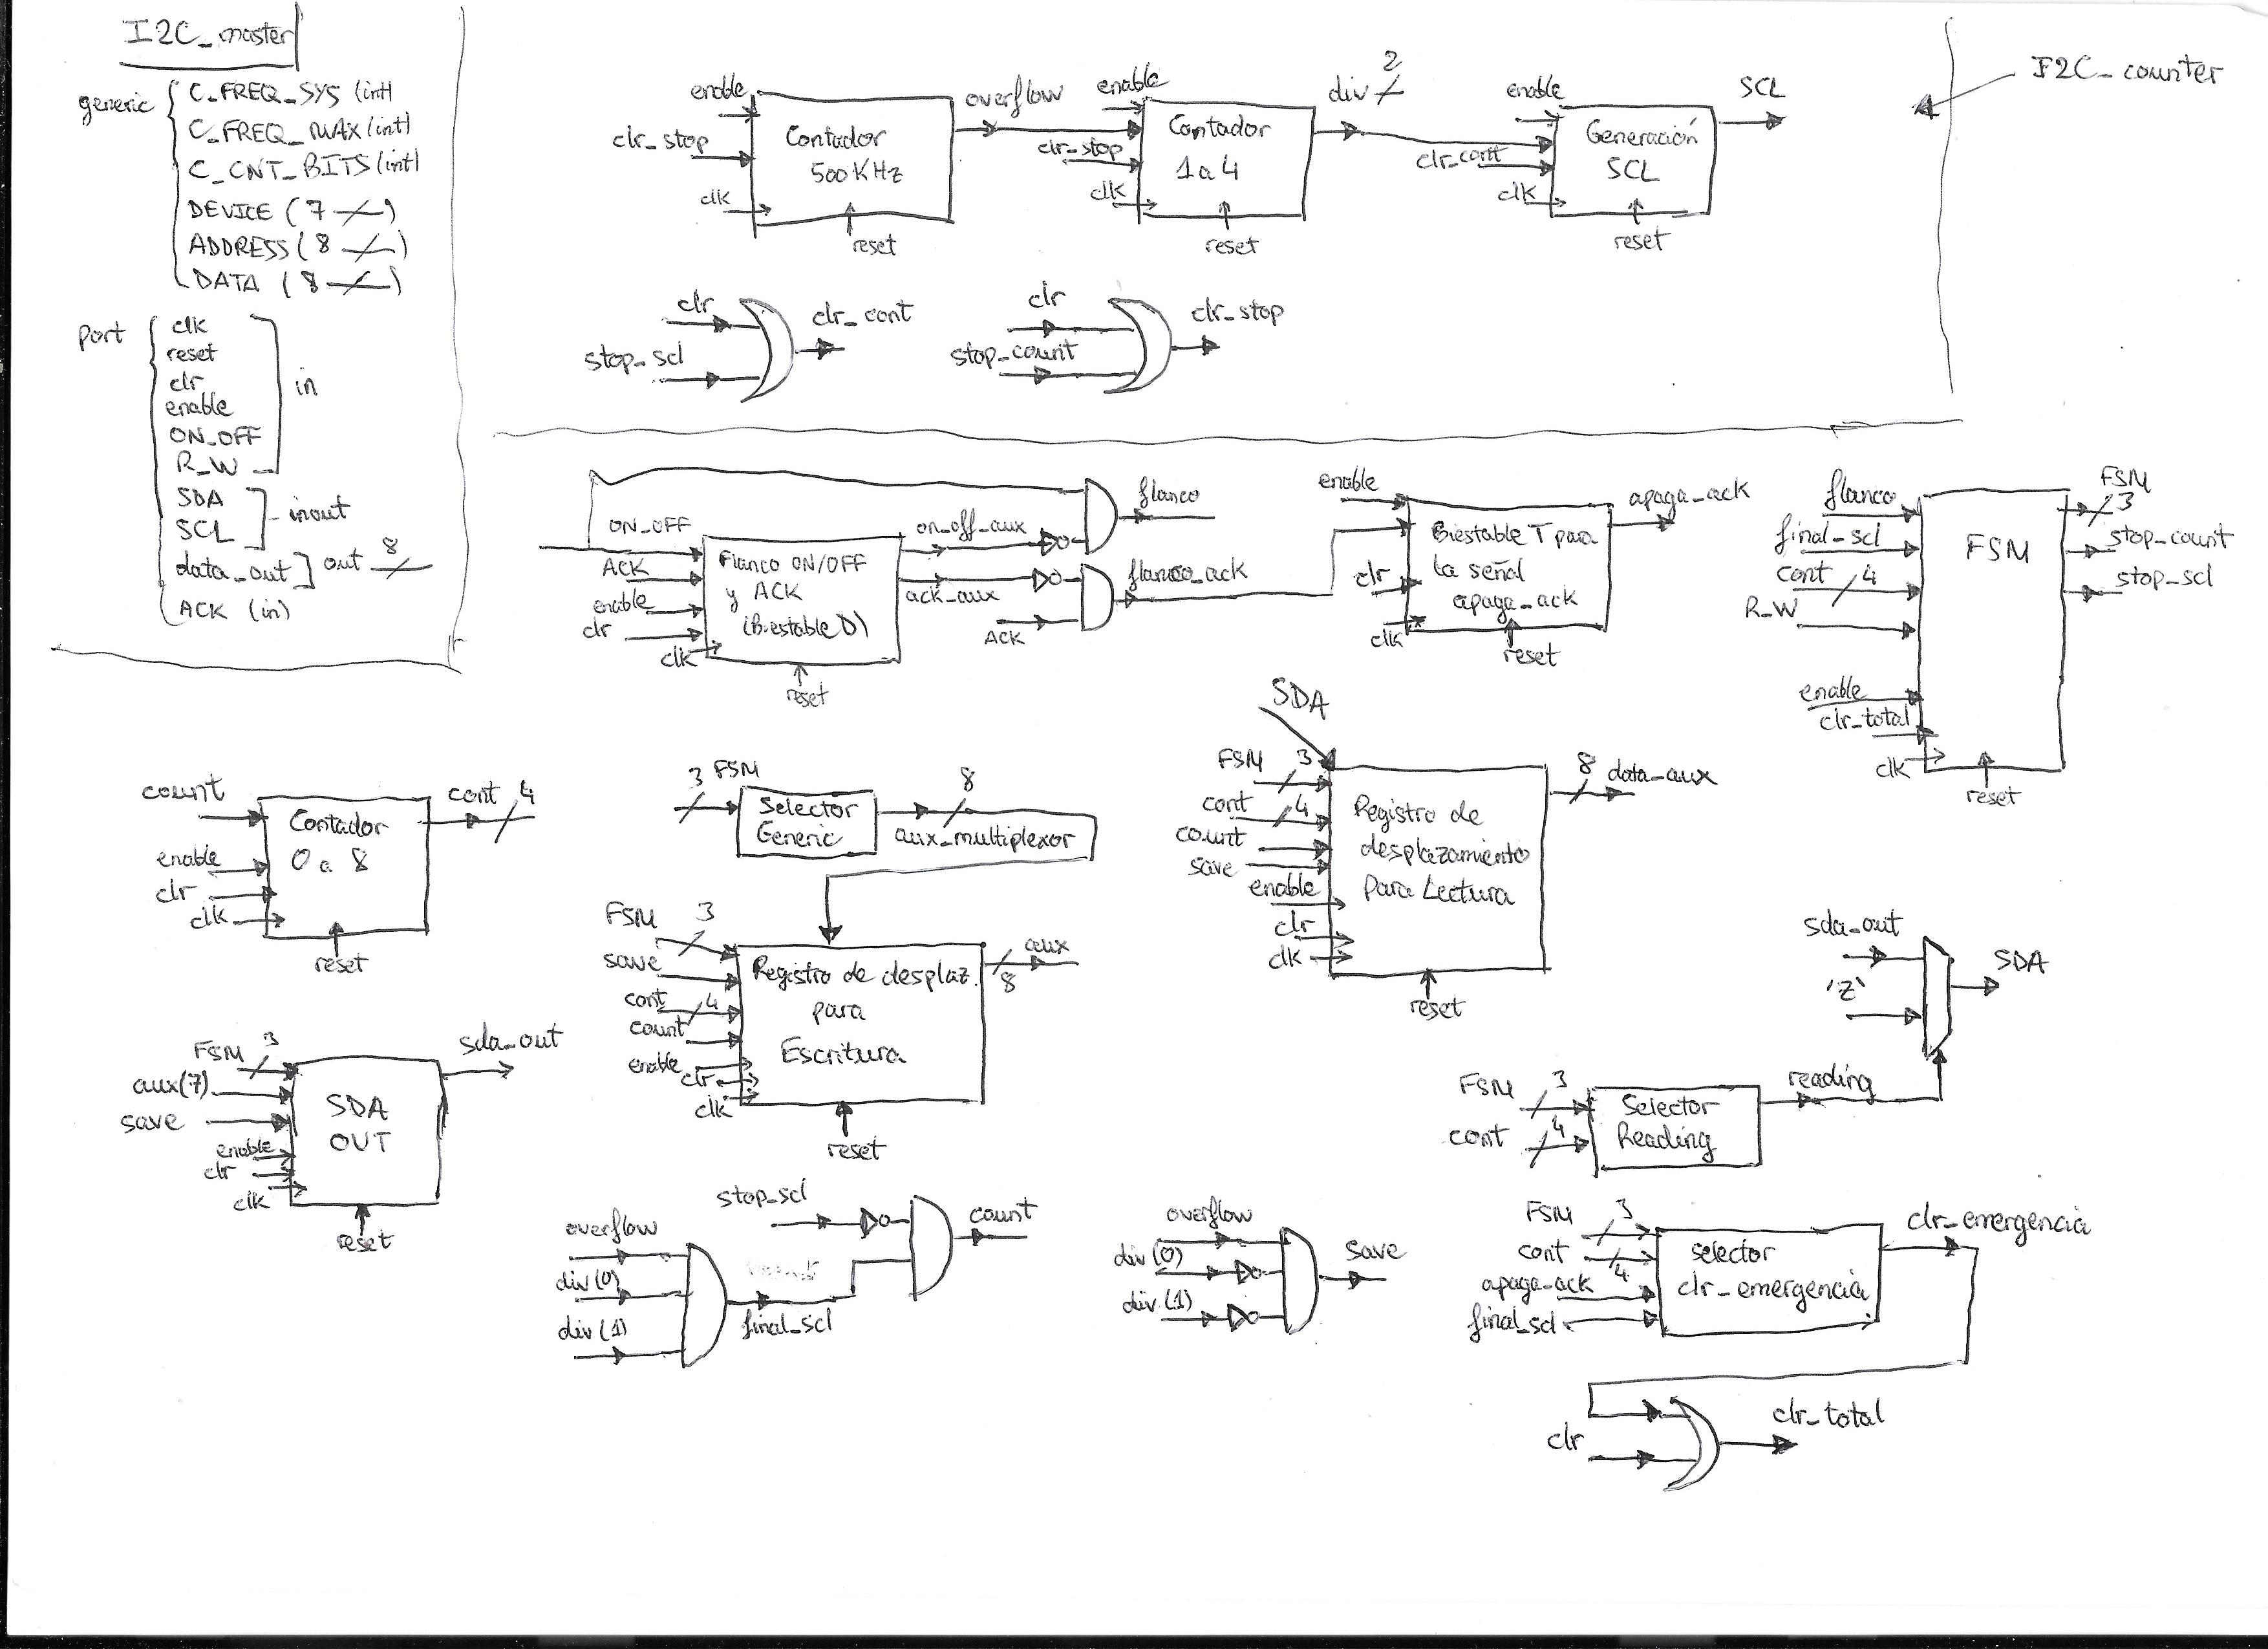 I2C_master
generic
C_FREQ_SYS (int)
C_FREQ_MAX (int)
C_CNT_BITS (int)
DEVICE (7)
ADDRESS (8)
DATA (8)
port
clk
reset
clr
enable
ON_OFF
R_W
in
SDA
SCL
inout
data_out
out 8
ACK (in)
enable
clr_stop
clk
Contador
500KHz
reset
overflow
enable
clr_stop
clk
Contador
1 a 4
reset
div 2
enable
clr_cont
clk
Generación
SCL
reset
SCL
I2C_counter
clr
stop_scl
clr_cont
clr
stop_count
clr_stop
ON_OFF
ACK
enable
clr
clk
Flanco ON/OFF
y ACK
(Biestable D)
reset
on_off_aux
ack_aux
ACK
flanco
flanco_ack
enable
clr
clk
Biestable T para
la señal
apaga_ack
reset
apaga_ack
flanco
final_scl
cont 4
R_W
enable
clr_total
clk
FSM
reset
FSM
3
stop_count
stop_scl
count
enable
clr
clk
Contador
0 a 8
reset
cont 4
3 FSM
Selector
Generic
8
aux_multiplexor
FSM 3
save
cont 4
count
enable
clr
clk
Registro de desplaz.
para
Escritura
reset
aux
8
SDA
FSM 3
cont 4
count
save
enable
clr
clk
Registro de
desplazamiento
Para Lectura
reset
8 data_aux
sda_out
'Z'
SDA
FSM 3
cont 4
Selector
Reading
reading
FSM 3
aux(7)
save
enable
clr
clk
SDA
OUT
reset
sda_out
overflow
div(0)
div(1)
final_scl
stop_scl
count
overflow
div(0)
div(1)
save
FSM 3
cont 4
apaga_ack
final_scl
selector
clr_emergencia
clr_emergencia
clr
clr_total